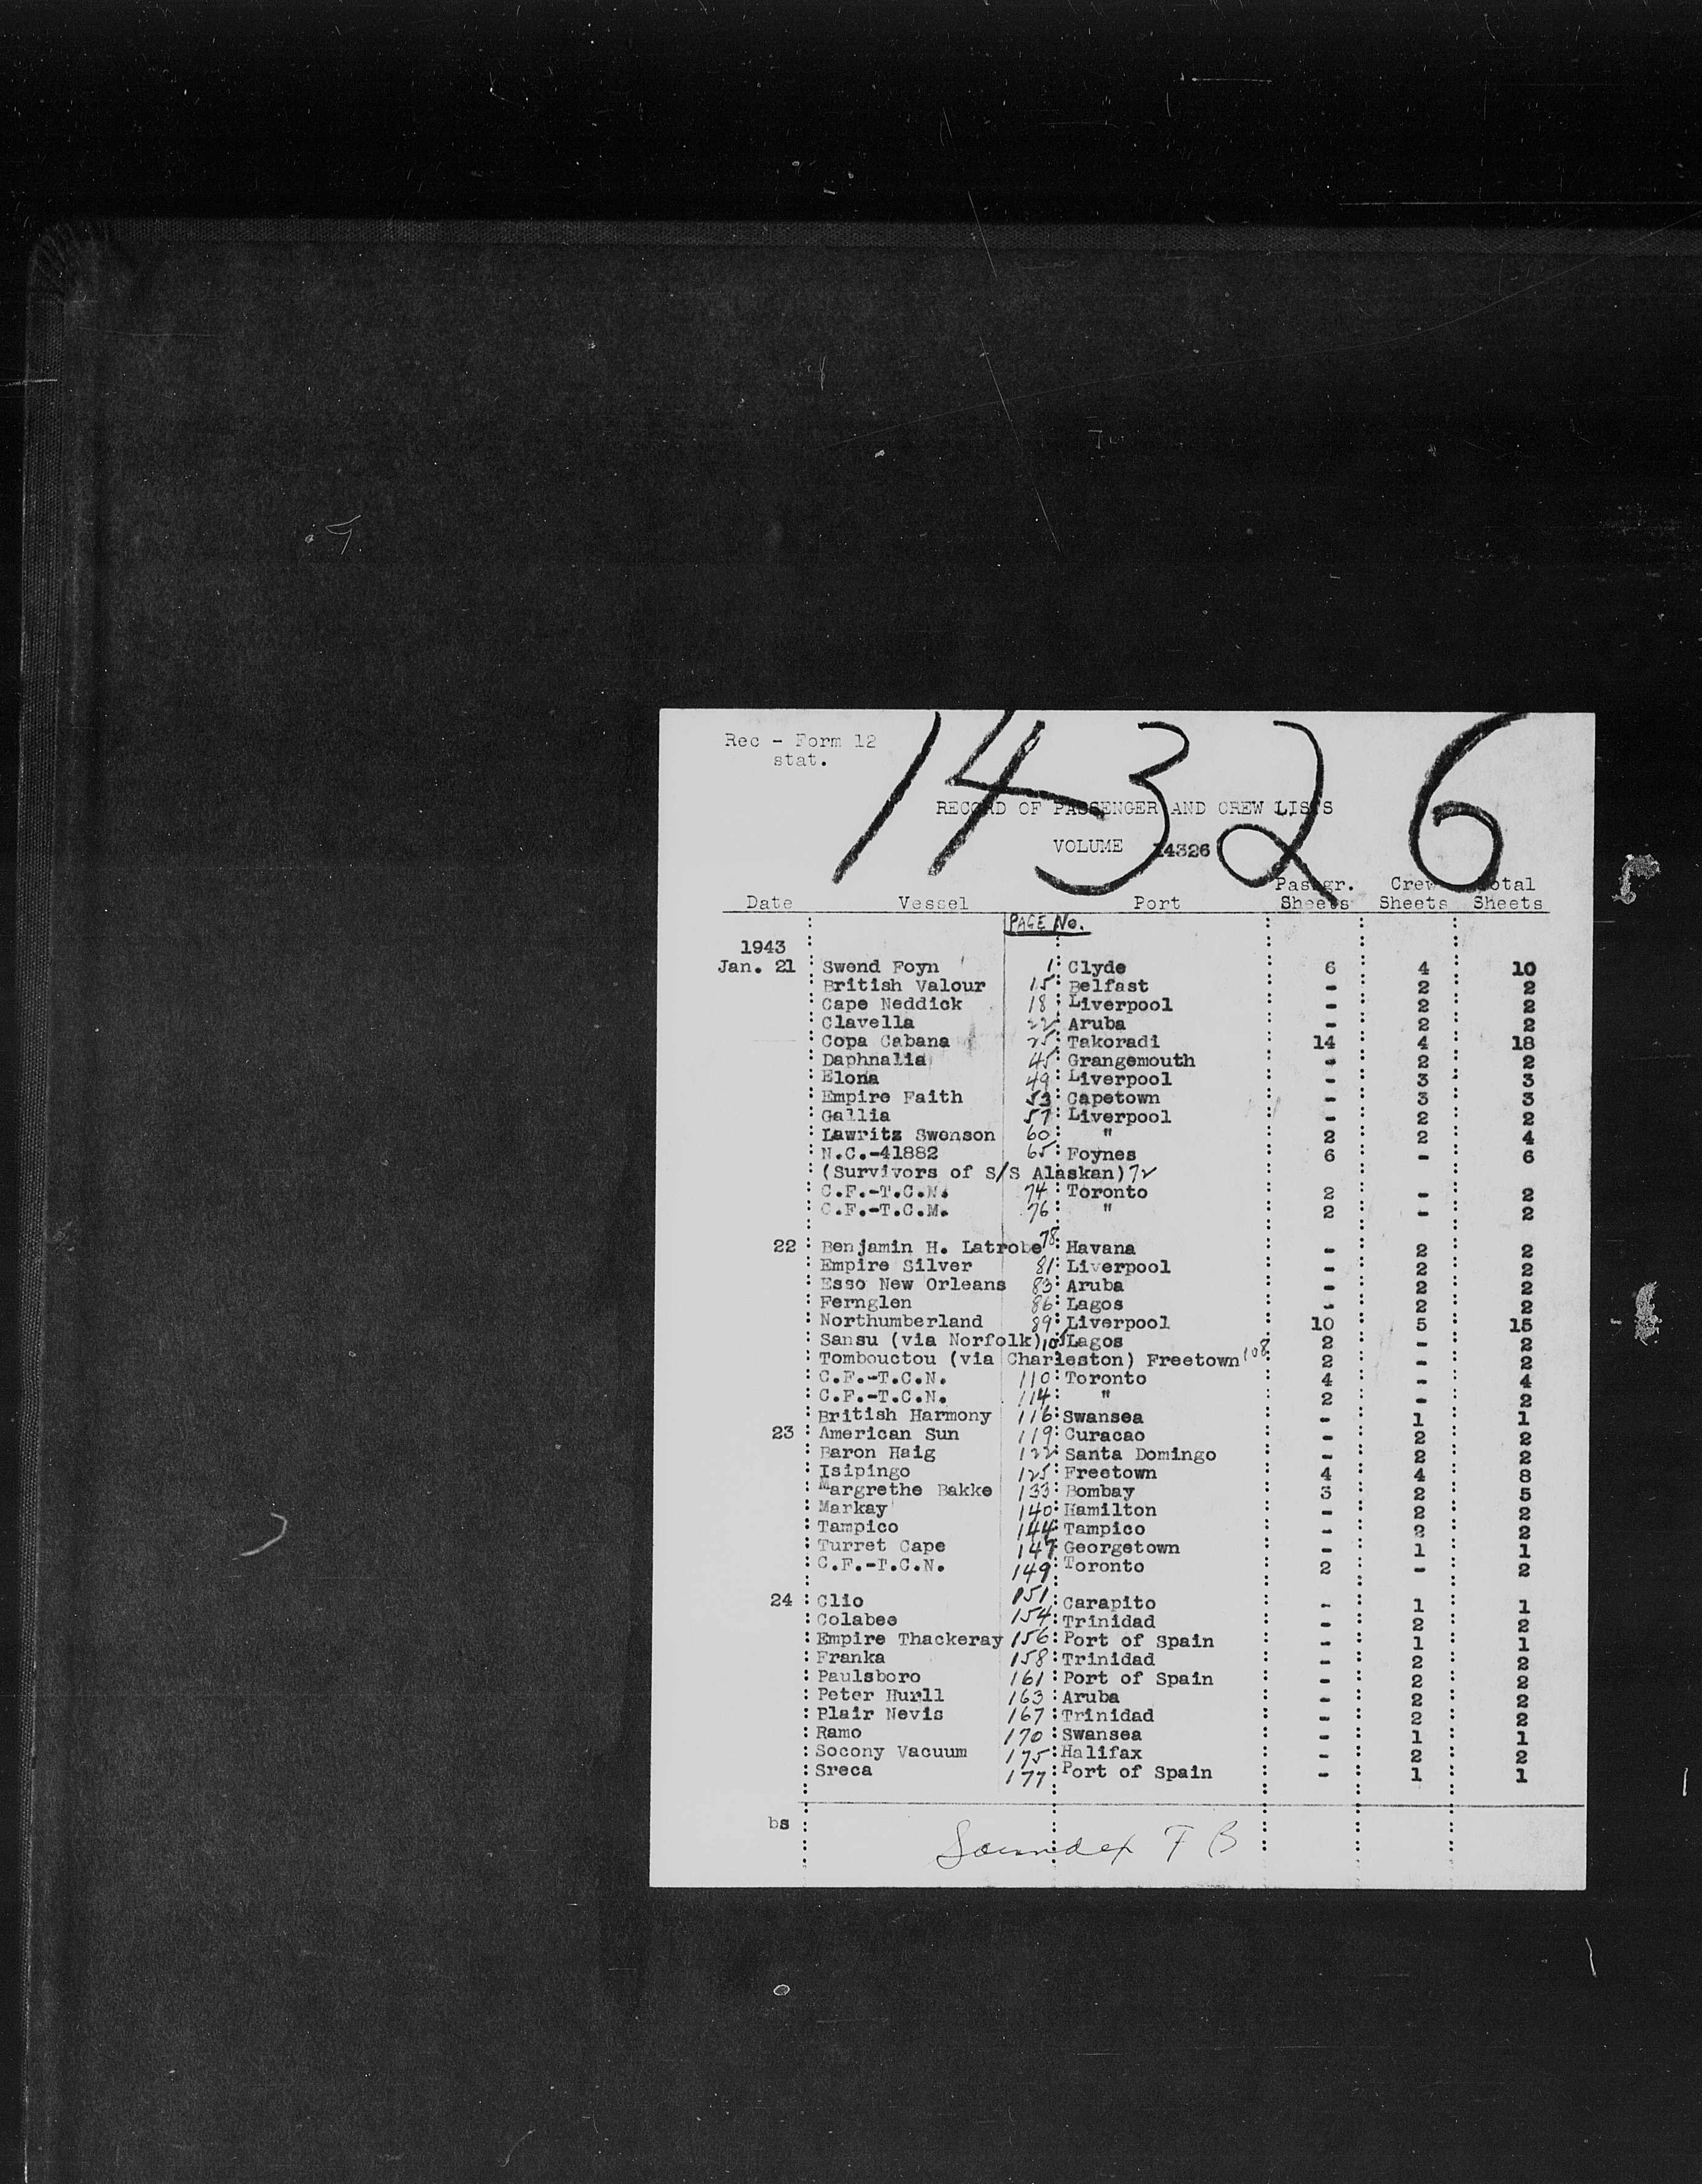 14326
Rec - Form 12
stat.
RECORD OF PASSENGER AND CREW LISTS
VOLUME 14326
Passgr. Crew Total
Date Vessel Port Sheets Sheets Sheets
PAGE No.
1943
Jan. 21 Swend Foyn 1 Clyde 6 4 10
British Valour 15 Belfast - 2 2
Cape Neddick 18 Liverpool - 2 2
Clavella 22 Aruba - 2 2
Copa Cabana 25 Takoradi 14 4 18
Daphnalia 45 Grangemouth - 2 2
Elona 49 Liverpool - 3 3
Empire Faith 53 Capetown - 3 3
Gallia 57 Liverpool - 2 2
Lawritz Swenson 60 " 2 2 4
N.C.-41882 65 Foynes 6 - 6
(Survivors of S/S Alaskan) 72
C.F.-T.C.N. 74 Toronto 2 - 2
C.F.-T.C.M. 76 " 2 - 2
22 Benjamin H. Latrobe 78 Havana - 2 2
Empire Silver 81 Liverpool - 2 2
Esso New Orleans 83 Aruba - 2 2
Fernglen 86 Lagos - 2 2
Northumberland 89 Liverpool 10 5 15
Sansu (via Norfolk) Lagos 2 - 2
Tombouctou (via Charleston) Freetown 108 2 - 2
C.F.-T.C.N. 110 Toronto 4 - 4
C.F.-T.C.N. 114 " 2 - 2
British Harmony 116 Swansea - 1 1
23 American Sun 119 Curacao - 2 2
Baron Haig 122 Santa Domingo - 2 2
Isipingo 125 Freetown 4 4 8
Margrethe Bakke 133 Bombay 3 2 5
Markay 140 Hamilton - 2 2
Tampico 144 Tampico - 2 2
Turret Cape 147 Georgetown - 1 1
C.F.-T.C.N. 149 Toronto 2 - 2
24 Clio 151 Carapito - 1 1
Colabee 154 Trinidad - 2 2
Empire Thackeray 156 Port of Spain - 1 1
Franka 158 Trinidad - 2 2
Paulsboro 161 Port of Spain - 2 2
Peter Hurll 163 Aruba - 2 2
Plair Nevis 167 Trinidad - 2 2
Ramo 170 Swansea - 1 1
Socony Vacuum 175 Halifax - 2 2
Sreca 177 Port of Spain - 1 1
bs
Soundex F B